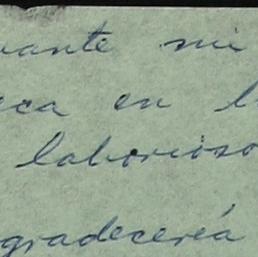 vante mi
eca en l
laborioso
gradecería